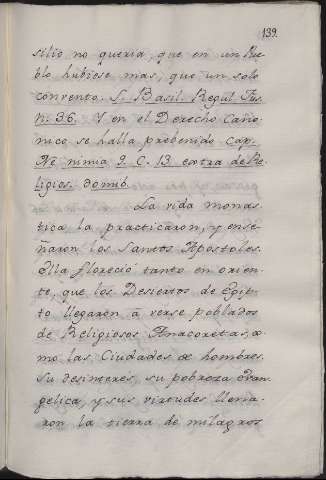 139.
silio no queria, que en un Pue-
blo hubiese mas, que un solo
convento. S. Basil. Regul. Fus.
n. 36. Y en el Derecho Cano-
nico se halla prebenido Cap.
Ne nimia 9. C. 13 extra de Re-
ligios. domib.
La vida monas-
tica la practicaron, y ense-
ñaron los Santos Apostoles.
Ella floreció tanto en orien-
te, que los Desiertos de Egip-
to llegaron á verse poblados
de Religiosos Anacoretas, co-
mo las Ciudades de hombres.
Su desinteres, su pobreza Evan-
gelica, y sus virtudes llena-
ron la tierra de milagros